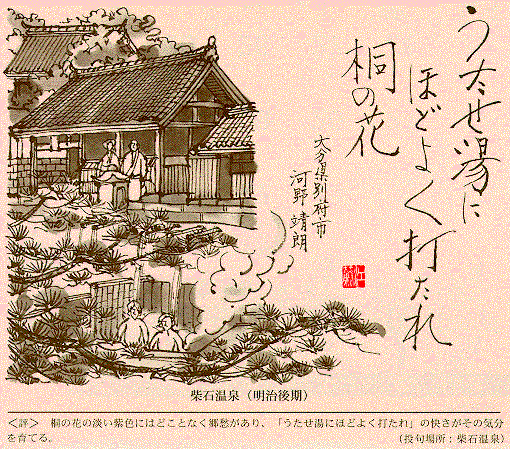 うたせ湯に
ほどよく打たれ
桐の花
大分県別府市
河野 靖朗
柴石温泉（明治後期）
＜評＞ 桐の花の淡い紫色にはどことなく郷愁があり、「うたせ湯にほどよく打たれ」の快さがその気分
を育てる。
（投句場所：柴石温泉）